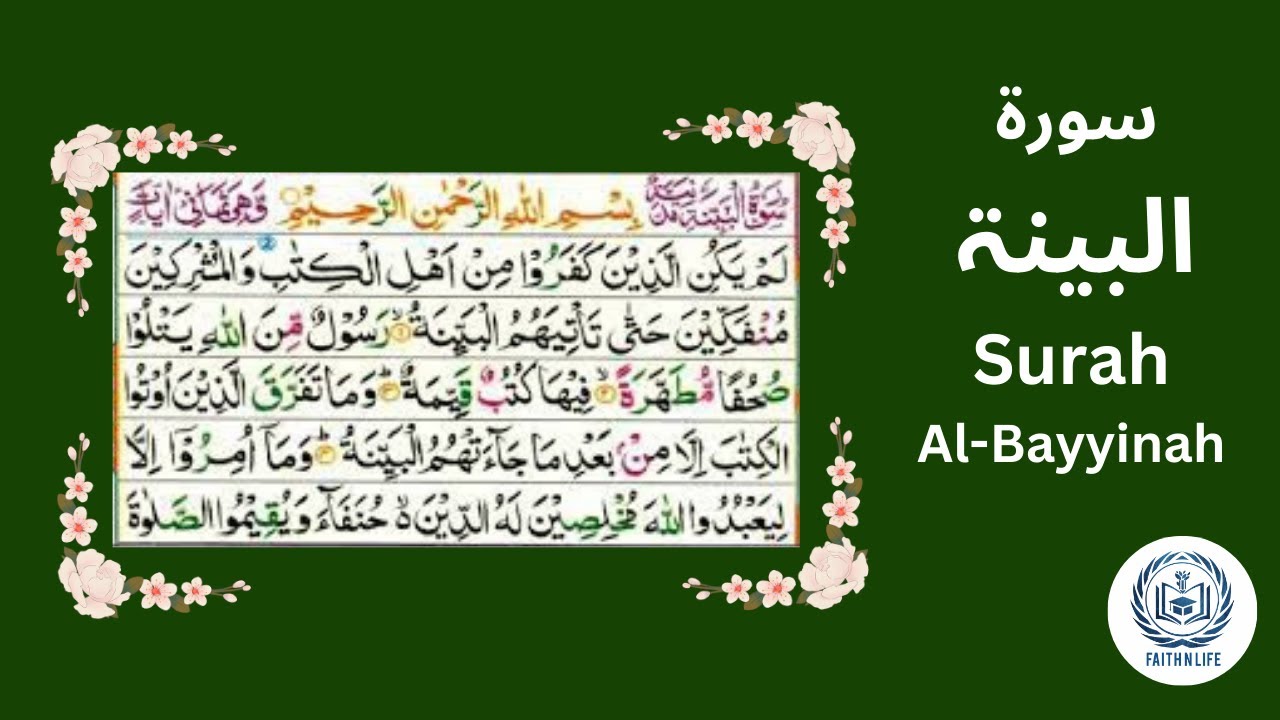 سُوْرَةُ الْبَيِّنَةِ مَدَنِيَّةٌ بِسْمِ اللهِ الرَّحْمٰنِ الرَّحِيْمِ وَهِيَ ثَمَانِيْ اٰيَاتٍ
لَمْ يَكُنِ الَّذِيْنَ كَفَرُوْا مِنْ اَهْلِ الْكِتٰبِ وَالْمُشْرِكِيْنَ
مُنْفَكِّيْنَ حَتّٰى تَاْتِيَهُمُ الْبَيِّنَةُ ۙ۱ رَسُوْلٌ مِّنَ اللهِ يَتْلُوْا
صُحُفًا مُّطَهَّرَةً ۙ۲ فِيْهَا كُتُبٌ قَيِّمَةٌ ؕ۳ وَمَا تَفَرَّقَ الَّذِيْنَ اُوْتُوا
الْكِتٰبَ اِلَّا مِنْۢ بَعْدِ مَا جَآءَتْهُمُ الْبَيِّنَةُ ؕ۴ وَمَاۤ اُمِرُوْۤا اِلَّا
لِيَعْبُدُوا اللهَ مُخْلِصِيْنَ لَهُ الدِّيْنَ ۙ۬ حُنَفَآءَ وَيُقِيْمُوا الصَّلٰوةَ
سورة
البينة
Surah
Al-Bayyinah
FAITH N LIFE